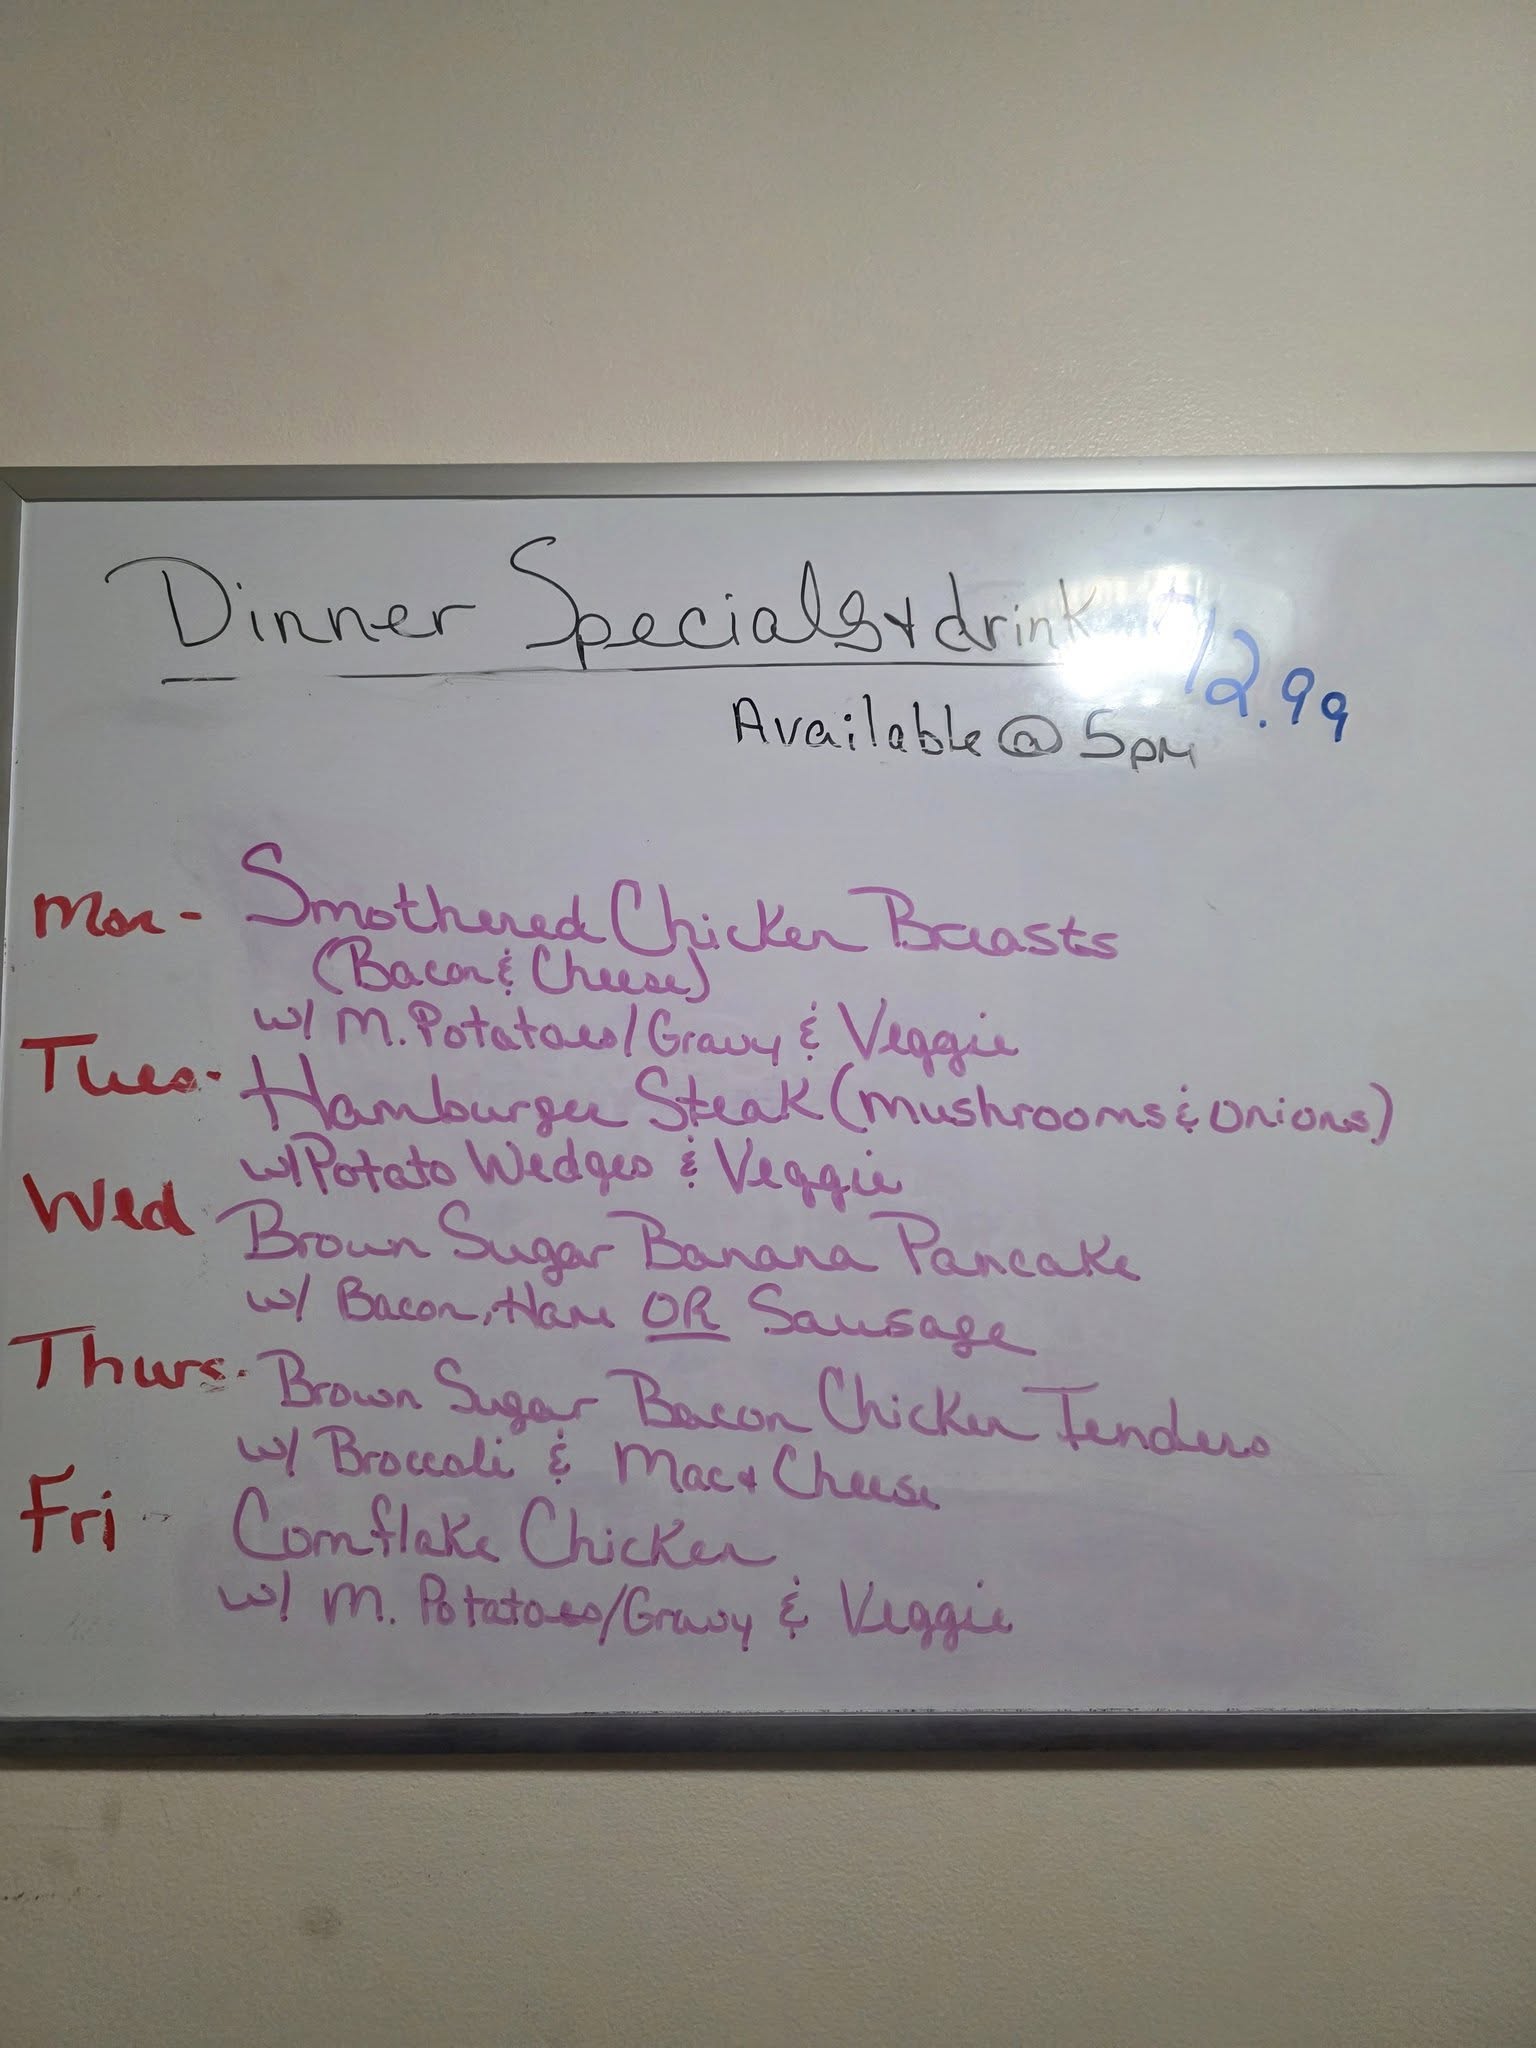 Dinner Specials + drink $12.99
Available @ 5pm
Mon - Smothered Chicken Breasts
(Bacon & Cheese)
w/ M. Potatoes/Gravy & Veggie
Tues- Hamburger Steak (Mushrooms & Onions)
w/ Potato Wedges & Veggie
Wed Brown Sugar Banana Pancake
w/ Bacon, Ham OR Sausage
Thurs- Brown Sugar Bacon Chicken Tenders
w/ Broccoli & Mac + Cheese
Fri - Cornflake Chicken
w/ M. Potatoes/Gravy & Veggie